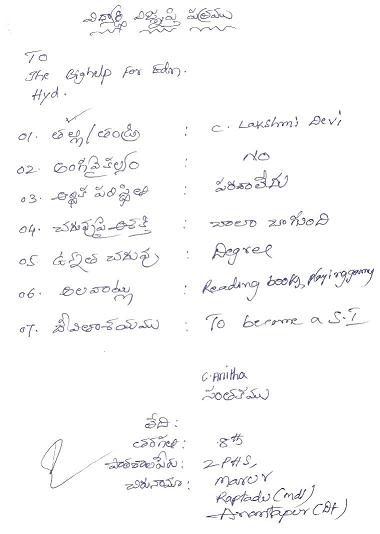 విద్యార్థి విజ్ఞప్తి పత్రము
To
The Bighelp For Edn.
Hyd.
01. తల్లి/తండ్రి : C. Lakshmi Devi
02. అంగవైకల్యం : NO
03. ఆర్థిక పరిస్థితి : పరవాలేదు
04. చదువుపై ఆసక్తి : చాలా బాగుంది
05. ఉన్నత చదువు : Degree
06. అలవాట్లు : Reading books, playing games
07. జీవితాశయము : To become a S.I
C. Anitha
సంతకము
తేది :
తరగతి : 8th
పాఠశాల పేరు : Z.P.H.S,
చిరునామా : Marur
Raptadu (mdl)
Anantapur (Dt)